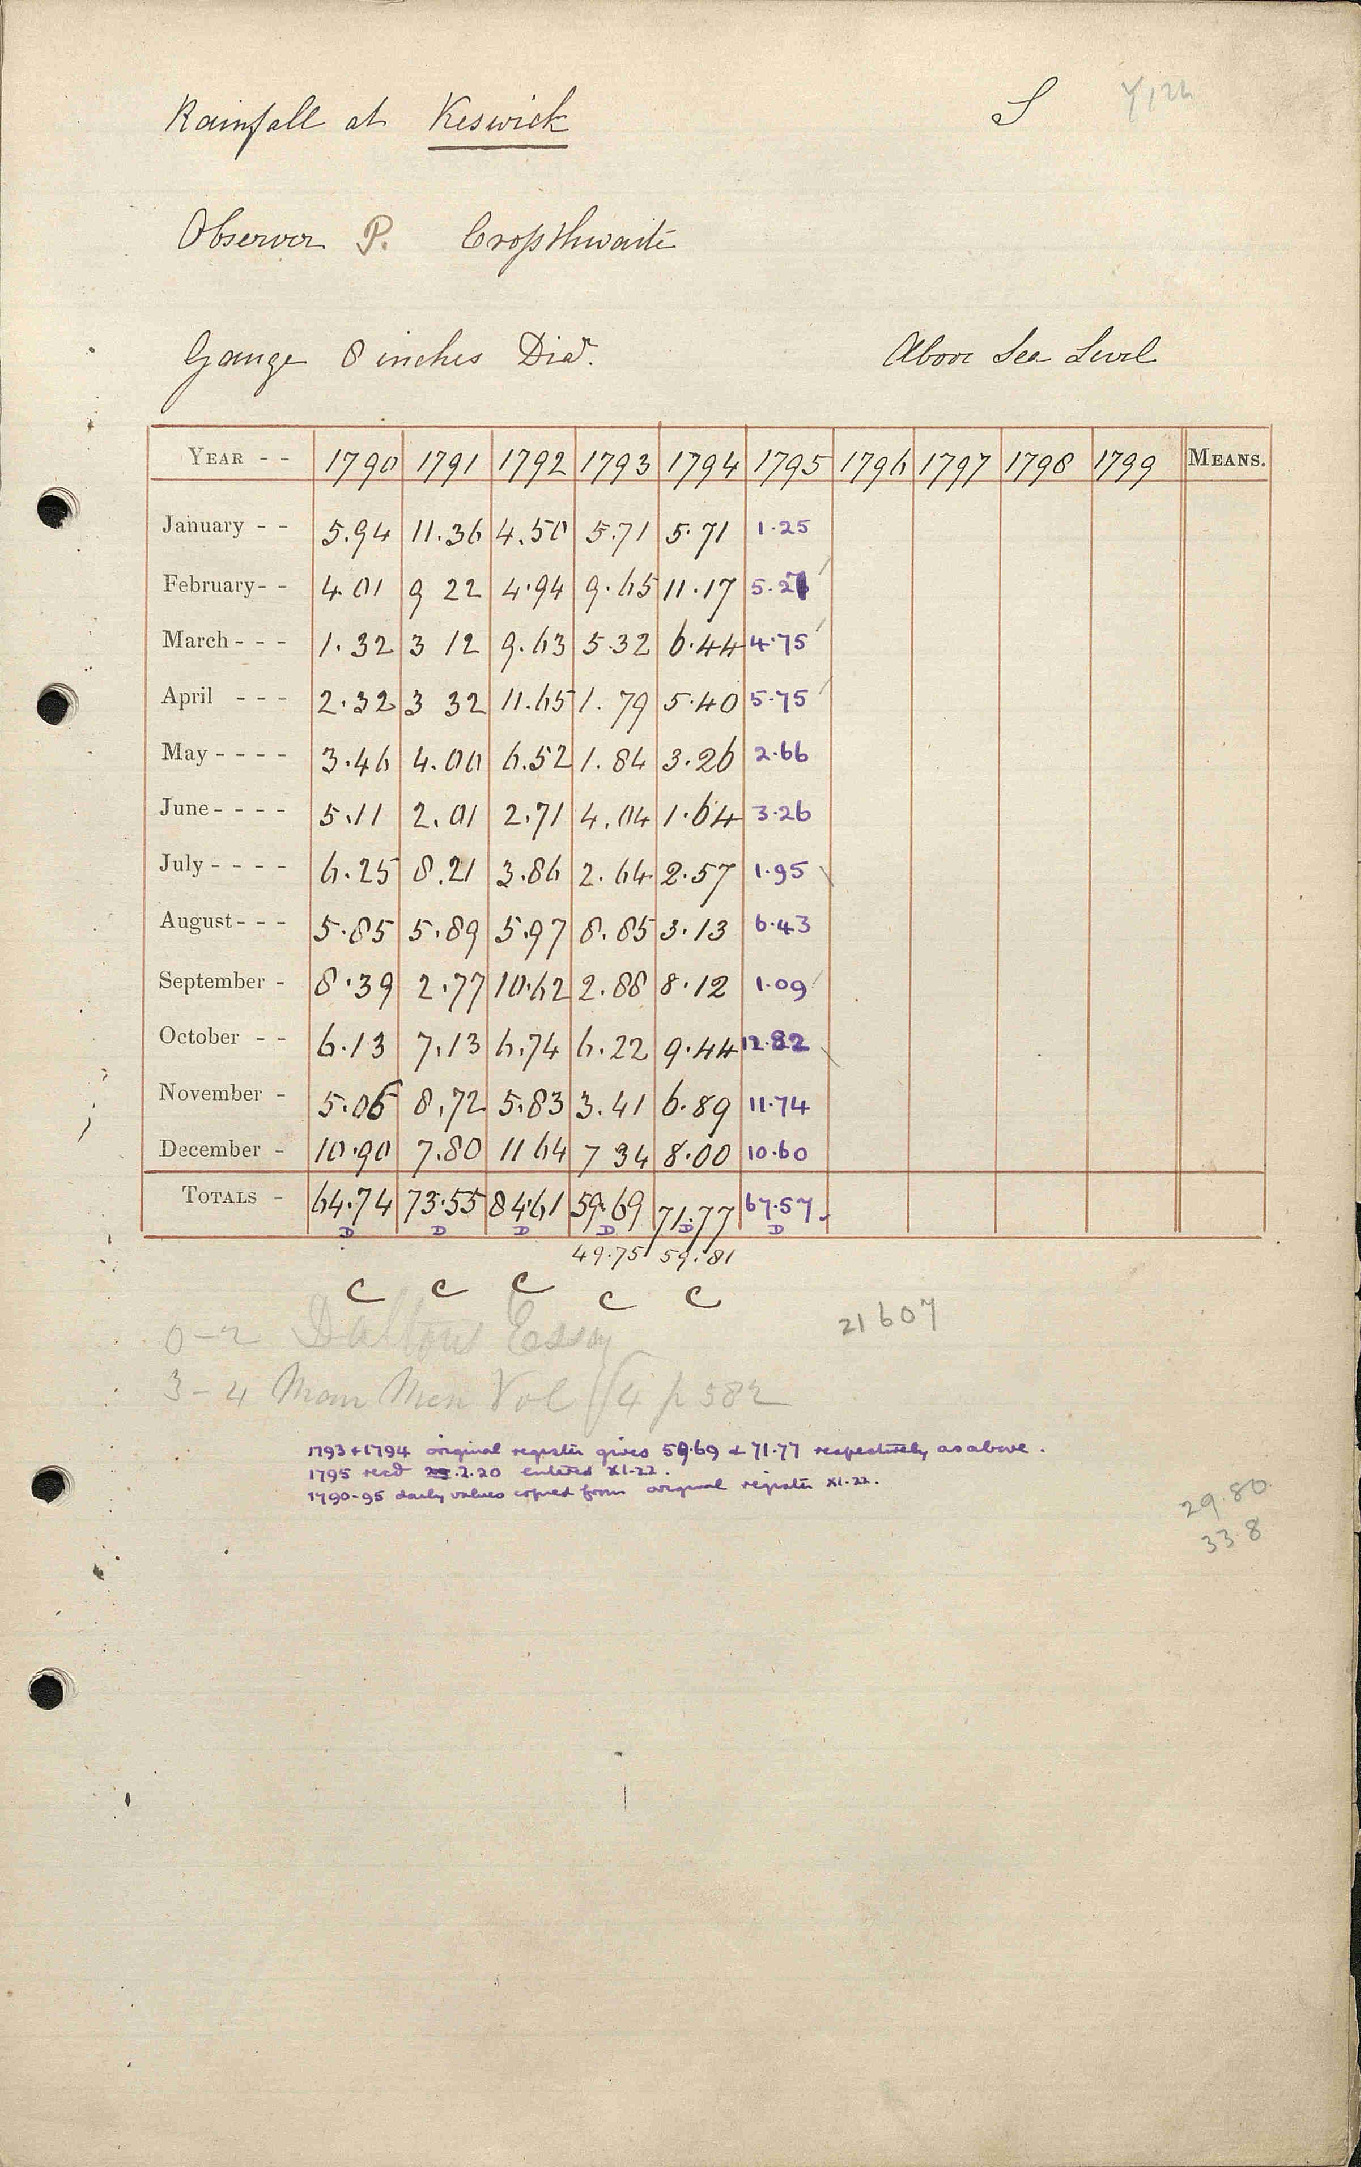 Rainfall at Keswick S
Observer P. Crosthwaite
Gauge 8 inches Diar. Above Sea Level
YEAR - - 1790 1791 1792 1793 1794 1795 1796 1797 1798 1799 MEANS.
January - - 5.94 11.36 4.50 5.71 5.71 1.25
February - - 4.01 9 22 4.94 9.65 11.17 5.27
March - - - 1.32 3 12 9.63 5.32 6.44 4.75
April - - - 2.32 3 32 11.65 1.79 5.40 5.75
May - - - - 3.46 4.00 6.52 1.84 3.26 2.66
June - - - - 5.11 2.01 2.71 4.04 1.64 3.26
July - - - - 6.25 8.21 3.86 2.64 2.57 1.95
August - - - 5.85 5.89 5.97 8.85 3.13 6.43
September - 8.39 2.77 10.62 2.88 8.12 1.09
October - - 6.13 7.13 6.74 6.22 9.44 12.82
November - 5.06 8.72 5.83 3.41 6.89 11.74
December - 10.90 7.80 11 64 7 34 8.00 10.60
TOTALS - 64.74 73.55 84.61 59.69 71.77 67.57
D D D D D D
49.75 59.81
C C C C C
0-2 Daltons Essay 21607
3-4 Man Mem Vol 4 p 582
1793 + 1794 original register gives 59.69 & 71.77 respectively as above.
1795 recd .2.20 entered XI.22.
1790-95 daily values copied from original register XI.22.
29.80
33.8